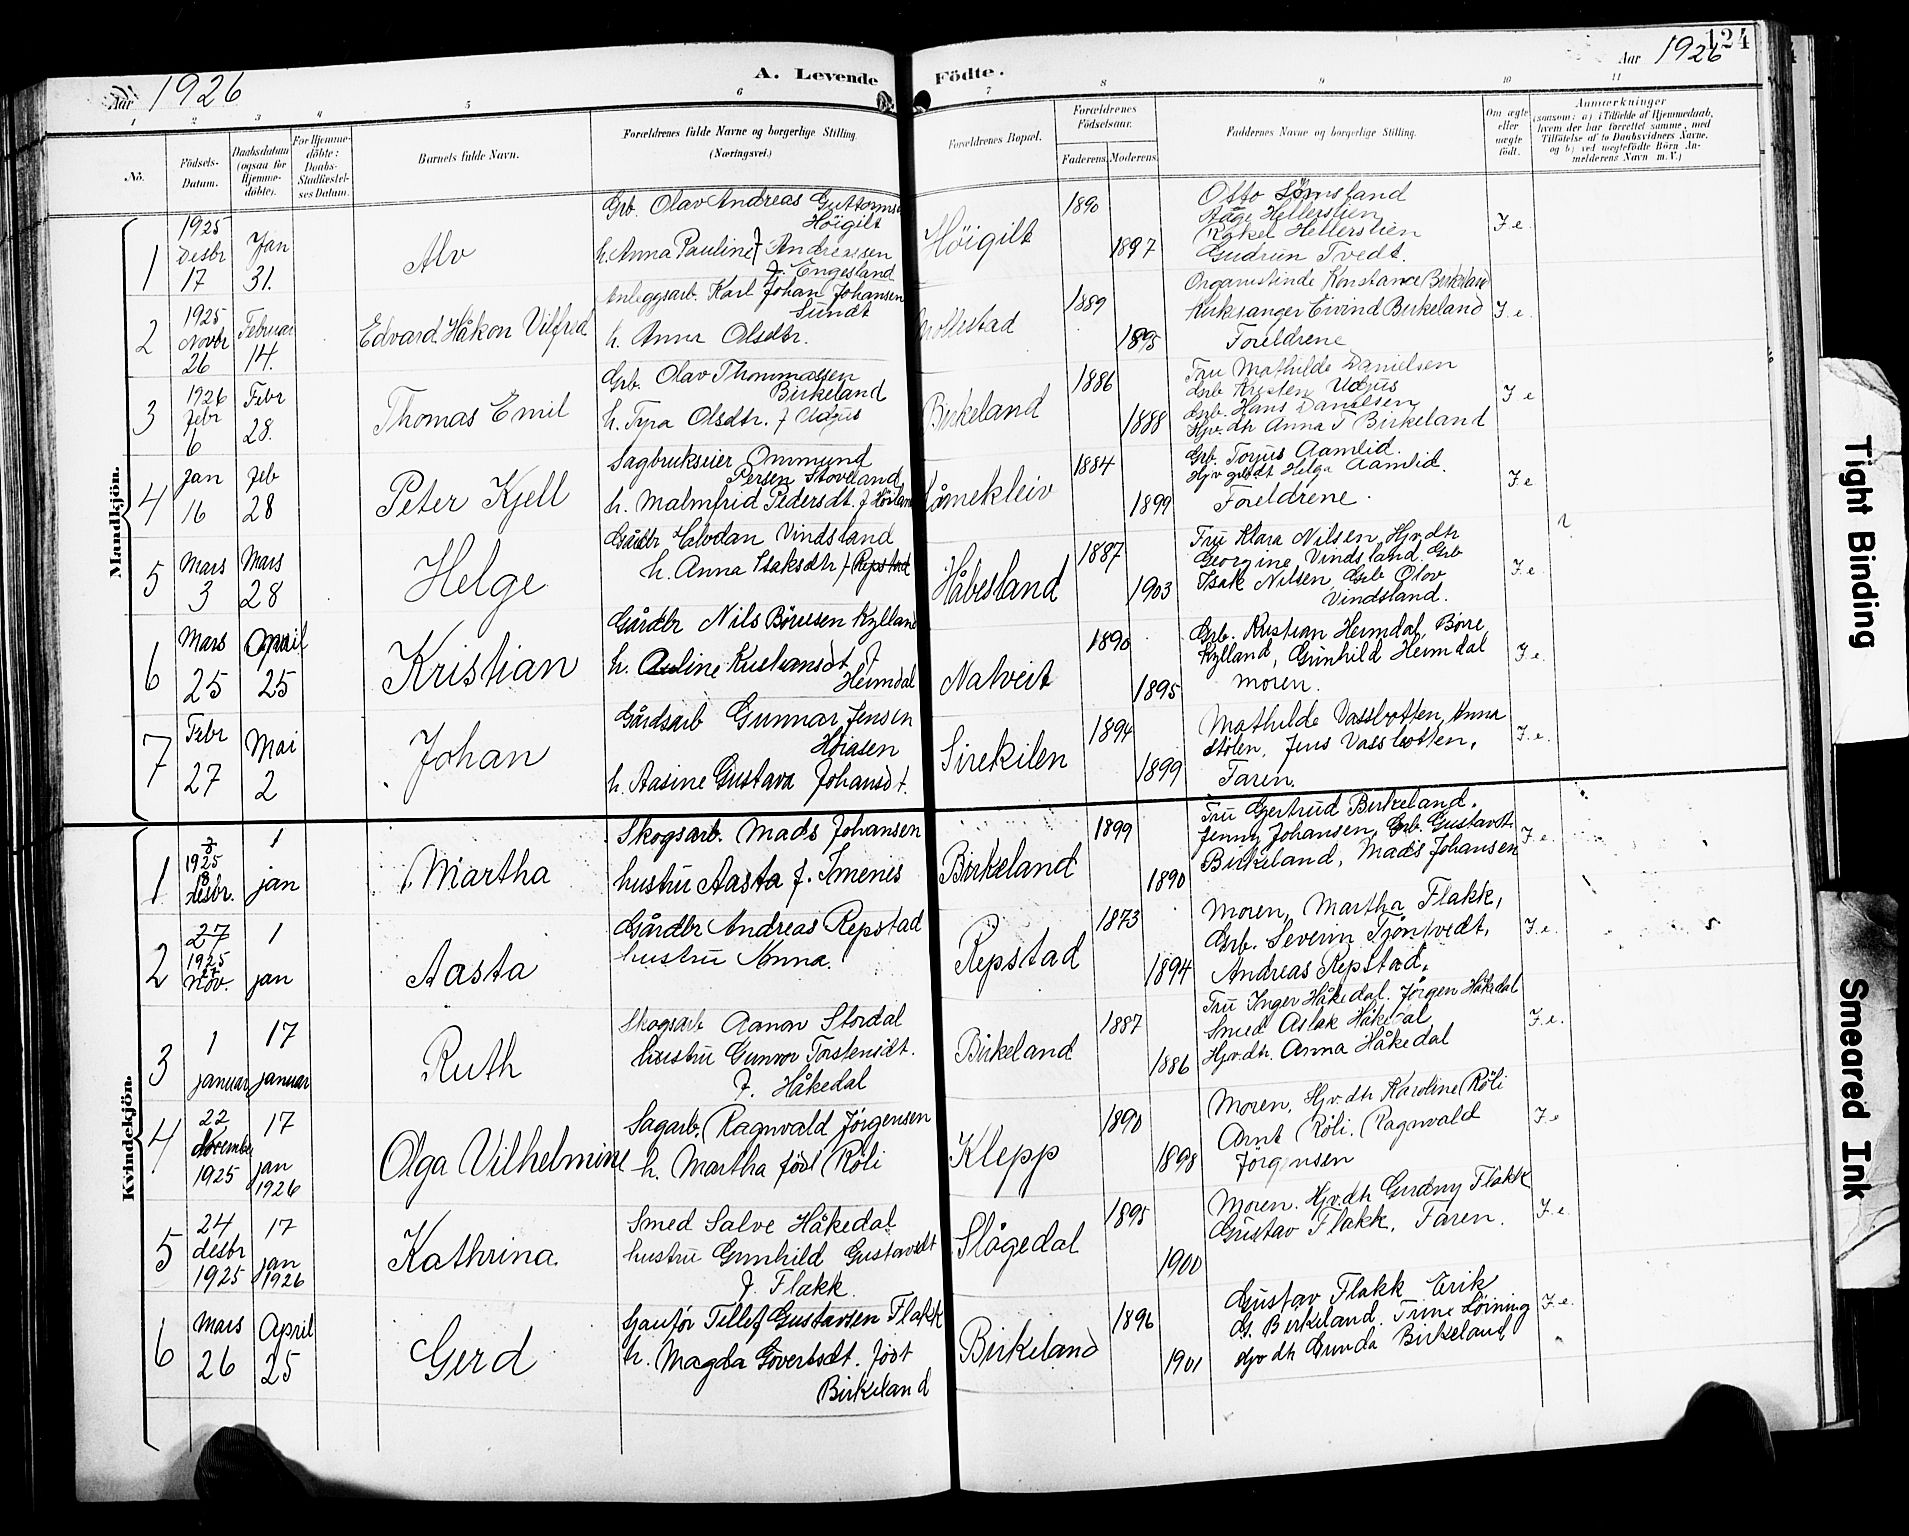 124
Aar 1926
A. Levende Födte.
Aar 1926
1 2 3 4 5 6 7 8 9 10 11
No.
Födsels-Datum.
Daabsdatum (ogsaa for Hjemme-döbte).
For Hjemme-döbte: Daabs-Stadfæstel-ses Datum.
Barnets fulde Navn.
Forældrenes fulde Navne og borgerlige Stilling. (Næringsvei.)
Forældrenes Bopæl.
Forældrenes Födselsaar.
Faderens. Moderens.
Faddernes Navne og borgerlige Stilling.
Om ægte eller uægte födt.
Anmærkninger
(saasom: a) i Tilfælde af Hjemmedaab, hvem der har forrettet samme, med Tilföielse af to Daabsvidners Navne, og b) ved uægtefödte Börn Anmelderens Navn m. V.)
Mandkjön.
1
1925 Desbr 17
Jan 31.
Alv
Grb. Olav Andreas Guttormsen
Höigilt
h. Anna Pauline Andreassen
f. Engesland
Höigilt
1890
1897
Otto
Aage Hellerslien
Rakel Hellerslien
Gudrun Tvedt.
F. e.
2
1925 Novbr 26
Februar 14.
Edvard Håkon Vilfred
Anleggsarb. Karl Johan Johansen
Sundt
h. Anna Olsdtr.
1889
1895
Organistinde Konstance Birkeland
Kirksanger Eivind Birkeland
Foreldrene
F. e.
3
1926 Febr 6
Febr 28.
Thomas Emil
Grb. Olav Thommassen
Birkeland
h. Tyra Olsdtr. f Udjus
Birkeland
1886
1888
Fru Mathilde Danielsen
Grb Kristen Udjus
Grb. Hans Danielsen
Hjv. dtr Anna T Birkeland
F. e
4
Jan 16
Feb 28
Peter Kjell
Sagbrukseier Ommund
Persen Stoveland
h. Malmfrid Pedersdt. f
1884
1899
Grb. Torjus Aamlid.
Helga Aamlid.
Foreldrene.
F. e
5
Mars 3
Mars 28
Helge
Gårdbr Halvdan Vindsland
h. Anna Isaksdtr f Repstad
Håbesland
1887
1903
Fru Klara Nilsen, Hjv. dtr
Georgine Vindsland, Grb
Isak Nilsen, Grb Olov
Vindsland.
F. e.
6
Mars 25
April 25
Kristian
Gårdbr Nils Börresen Kylland
h. Auline Kristiansdt f
Heimdal
Natveit
1890
1895
Grb. Kristian Heimdal, Börre
Kylland, Gunhild Heimdal
moren.
F. e.
7
Febr 27
Mai 2
Johan
Gårdsarb Gunnar Jensen
Höiasen
h. Aasine Gustava Johansdt.
Sirekilen
1894
1899
Mathilde Vassbotten, Anna
Stölen, Jens Vassbotten,
Faren.
F. e.
Kvindekjön.
1
1925 18 desbr.
1 jan
Martha
Skogsarb. Mads Johansen
hustru Aasta f. Imenes
Birkeland
1899
1890
Fru Gjertrud Birkeland.
Jenny Johansen, Grb. Gustav
Birkeland, Mads Johansen
F. e.
2
27 1925 27 Nov.
1 jan
Aasta
Gårdbr Andreas Repstad
hustru Anna.
Repstad
1873
1894
Moren, Martha Flakk,
Grb. Severin Tjöntvedt,
Andreas Repstad.
F. e.
3
1 januar
17 januar
Ruth
Skogsarb Aanon Stordal
hustru Gunvor Torstensdt.
f. Håkedal
Birkeland
1887
1886
Fru Inger Håkedal. Jörgen Håkedal
Smed Aslak Håkedal
Hjv. dtr. Anna Håkedal
F. e.
4
22 November 1925
17 jan 1926
Olga Vilhelmine
Sagarb. Ragnvald Jørgensen
h. Martha födt Röli
Klepp
1890
1898
Moren, Hjv. dtr Karoline Röli
Arnt Röli. Ragnvald
Jörgensen
F. e
5
24 desbr 1925
17 jan 1926
Kathrina.
Smed Salve Håkedal
hustru Gunhild Gustavsdt
f. Flakk.
Slågedal
1895
1900
Moren. Hjv. dtr Gudny Flakk
Gustav Flakk, Faren.
F. e.
6
Mars 26
April 25
Gerd
Tellef Gustavsen Flakk
h. Magda Govertsdt. födt
Birkeland
Birkeland
1896
1901
Gustav Flakk Erik
G. Birkeland. Trine
Hjv dtr Gunda Birkeland
F. e.
Tight Binding
Smeared Ink